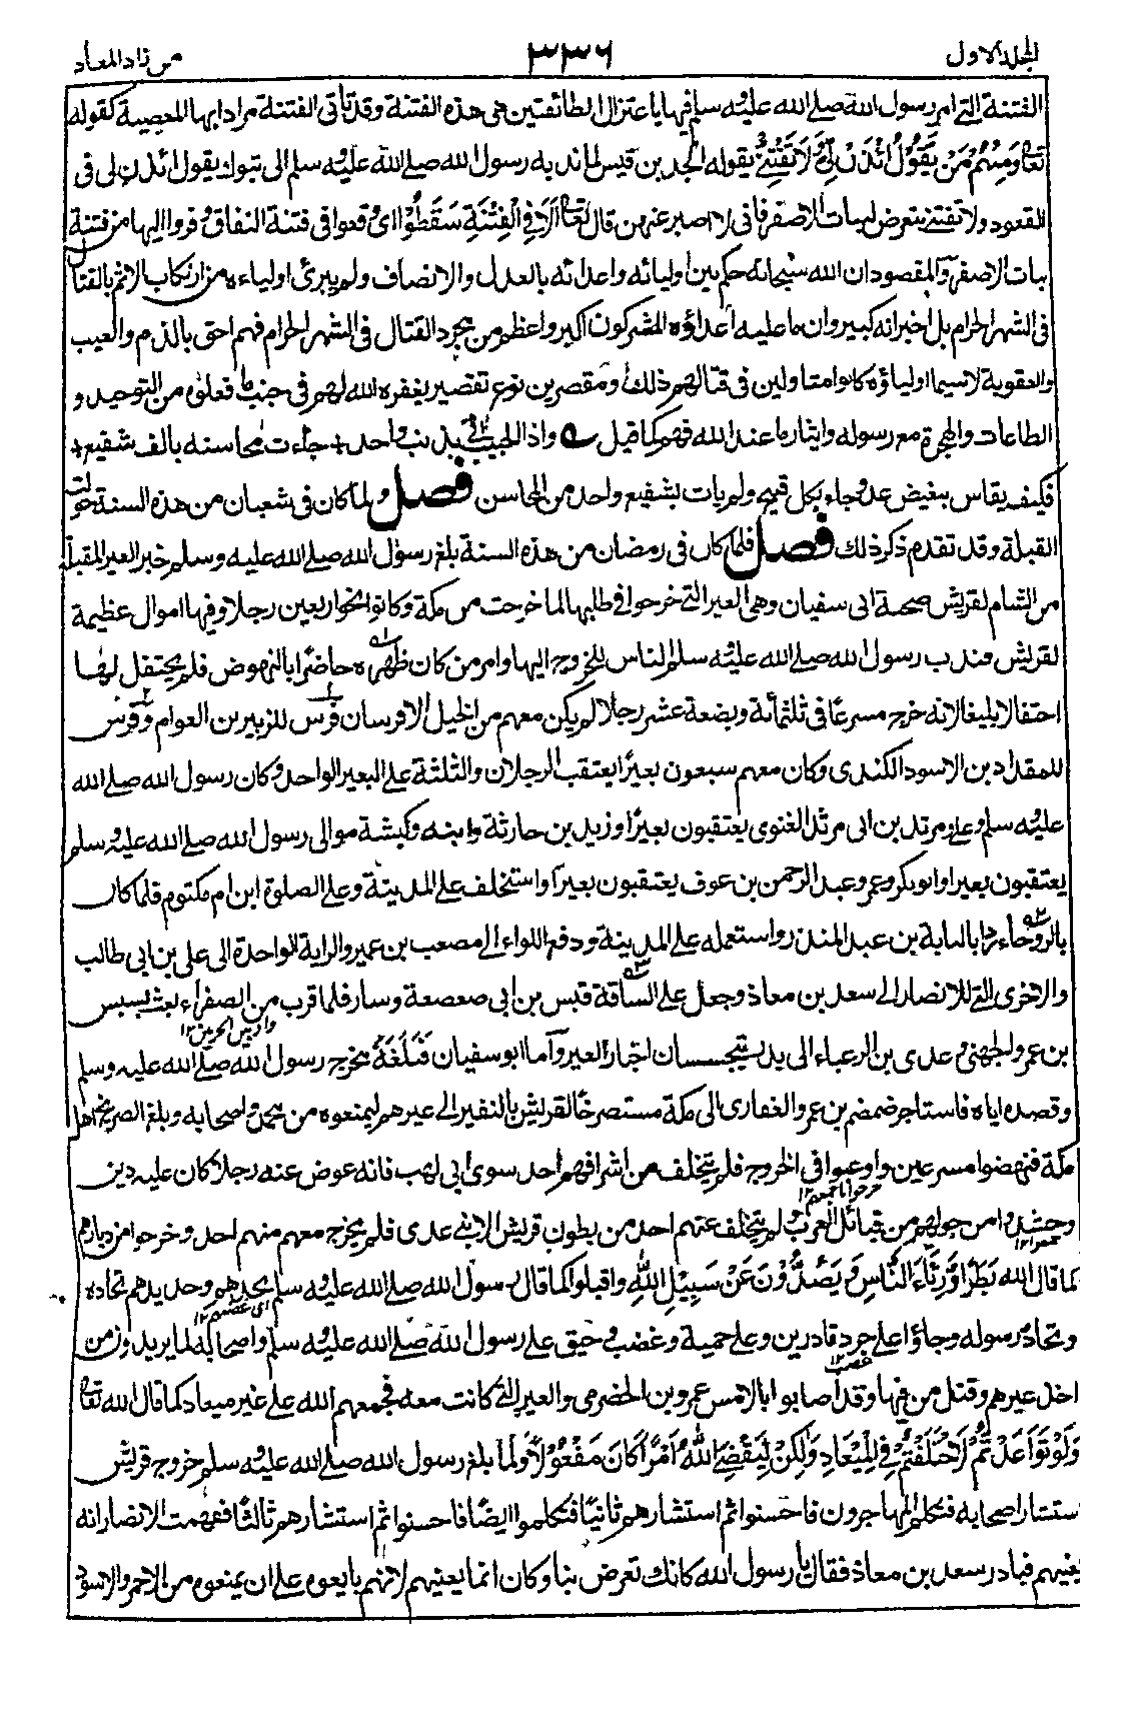 المجلد الاول
٣٣٦
من زاد المعاد
الفتنة التي امر رسول الله صلى الله عليه وسلم فيها باعتزال الطائفتين هى هذه الفتنة وقد تاتى الفتنة مرادا بها المعصية كقوله
تعالى وَمِنْهُمْ مَنْ يَقُوْلُ ائْذَنْ لِّيْ وَلَا تَفْتِنِّيْ يقوله الجد بن قيس لما ندبه رسول الله صلى الله عليه وسلم الى تبوك يقول ائذن لى فى
القعود ولا تفتنى بتعرض لبنات الاصفر فانى لا اصبر عنهن قال تعالى اَلَا فِي الْفِتْنَةِ سَقَطُوْا اى وقعوا فى فتنة النفاق وفروا اليها من فتنة
بنات الاصفر والمقصود ان الله سبحانه حكم بين اوليائه واعدائه بالعدل والانصاف ولم يبرئ اولياءه من ارتكاب الاثم بالقتال
فى الشهر الحرام بل اخبر انه كبير وان ما عليه اعداؤه المشركون اكبر واعظم من مجرد القتال فى الشهر الحرام فهم احق بالذم والعيب
والعقوبة لاسيما اولياؤه كانوا متاولين فى قتالهم ذلك ومقصرين نوع تقصير يغفره الله لهم فى جنب ما فعلوه من التوحيد و
الطاعات والهجرة مع رسوله وايثار ما عند الله فهم كما قيل ؎ واذا الحبيب اتى بذنب واحد + جاءت محاسنه بالف شفيع +
فكيف يقاس ببغيض عدو جاء بكل قبيح ولم يات بشفيع واحد من المحاسن فصل ولما كان فى شعبان من هذه السنة حولت
القبلة وقد تقدم ذكر ذلك فصل فلما كان فى رمضان من هذه السنة بلغ رسول الله صلى الله عليه وسلم خبر العير المقبلة
من الشام لقريش صحبة ابى سفيان وهى العير التى خرجوا فى طلبها لما خرجت من مكة وكانوا نحو اربعين رجلا وفيها اموال عظيمة
لقريش فندب رسول الله صلى الله عليه وسلم الناس للخروج اليها وامر من كان ظهره حاضرا بالنهوض فلم يحتفل لها
احتفالا بليغا لانه خرج مسرعا فى ثلثمائة وبضعة عشر رجلا لم يكن معهم من الخيل الا فرسان فرس للزبير بن العوام وفرس
للمقداد بن الاسود الكندى وكان معهم سبعون بعيرا يعتقب الرجلان والثلثة على البعير الواحد وكان رسول الله صلى الله
عليه وسلم وعلى ومرثد بن ابى مرثد الغنوى يعتقبون بعيرا وزيد بن حارثة وابنه وكبشة موالى رسول الله صلى الله عليه وسلم
يعتقبون بعيرا وابو بكر وعمر وعبد الرحمن بن عوف يعتقبون بعيرا واستخلف على المدينة وعلى الصلوة ابن ام مكتوم فلما كان
بالروحاء رد ابا لبابة بن عبد المنذر واستعمله على المدينة ودفع اللواء الى مصعب بن عمير والراية الواحدة الى على بن ابى طالب
والاخرى التى للانصار الى سعد بن معاذ وجعل على الساقة قيس بن ابى صعصعة وسار فلما قرب من الصفراء بعث بسبس
واد بين الحرمين ١٢
بن عمرو الجهنى وعدى بن الرعباء الى بدر يتجسسان اخبار العير واما ابو سفيان فَبَلَغَهُ مخرج رسول الله صلى الله عليه وسلم
وقصده اياه فاستاجر ضمضم بن عمرو الغفارى الى مكة مستصرخا لقريش بالنفير الى عيرهم ليمنعوه من محمد واصحابه وبلغ الصريخ اهل
مكة فنهضوا مسرعين واوعبوا فى الخروج فلم يتخلف من اشرافهم احد سوى ابى لهب فانه عوض عنه رجلا كان عليه دين
خرجوا باجمعهم ١٢
وحشدوا من حولهم من قبائل العرب ولم يتخلف عنهم احد من بطون قريش الا بنى عدى فلم يخرج معهم منهم احد وخرجوا من ديارهم
جمعوا ١٢
كما قال الله بَطَرًا وَّرِئَاءَ النَّاسِ وَيَصُدُّوْنَ عَنْ سَبِيْلِ اللهِ واقبلوا كما قال رسول الله صلى الله عليه وسلم بحدهم وحديدهم تحاده
اى غضبهم ١٢
وتحاد رسوله وجاؤا على حرد قادرين وعلى حمية وغضب وحنق على رسول الله صلى الله عليه وسلم واصحابه لما يريدون من
غضب ١٢
اخذ عيرهم وقتل من فيها وقد اصابوا بالامس عمرو بن الحضرمى والعير التى كانت معه فجمعهم الله على غير ميعاد كما قال الله تعالى
وَلَوْ تَوَاعَدْتُّمْ لَاخْتَلَفْتُمْ فِي الْمِيْعَادِ وَلٰكِنْ لِّيَقْضِيَ اللهُ اَمْرًا كَانَ مَفْعُوْلًا ولما بلغ رسول الله صلى الله عليه وسلم خروج قريش
استشار اصحابه فتكلم المهاجرون فاحسنوا ثم استشارهم ثانيا فتكلموا ايضا فاحسنوا ثم استشارهم ثالثا ففهمت الانصار انه
يعنيهم فبادر سعد بن معاذ فقال يا رسول الله كانك تعرض بنا وكان انما يعنيهم لانهم بايعوه على ان يمنعوه من الاحمر والاسود